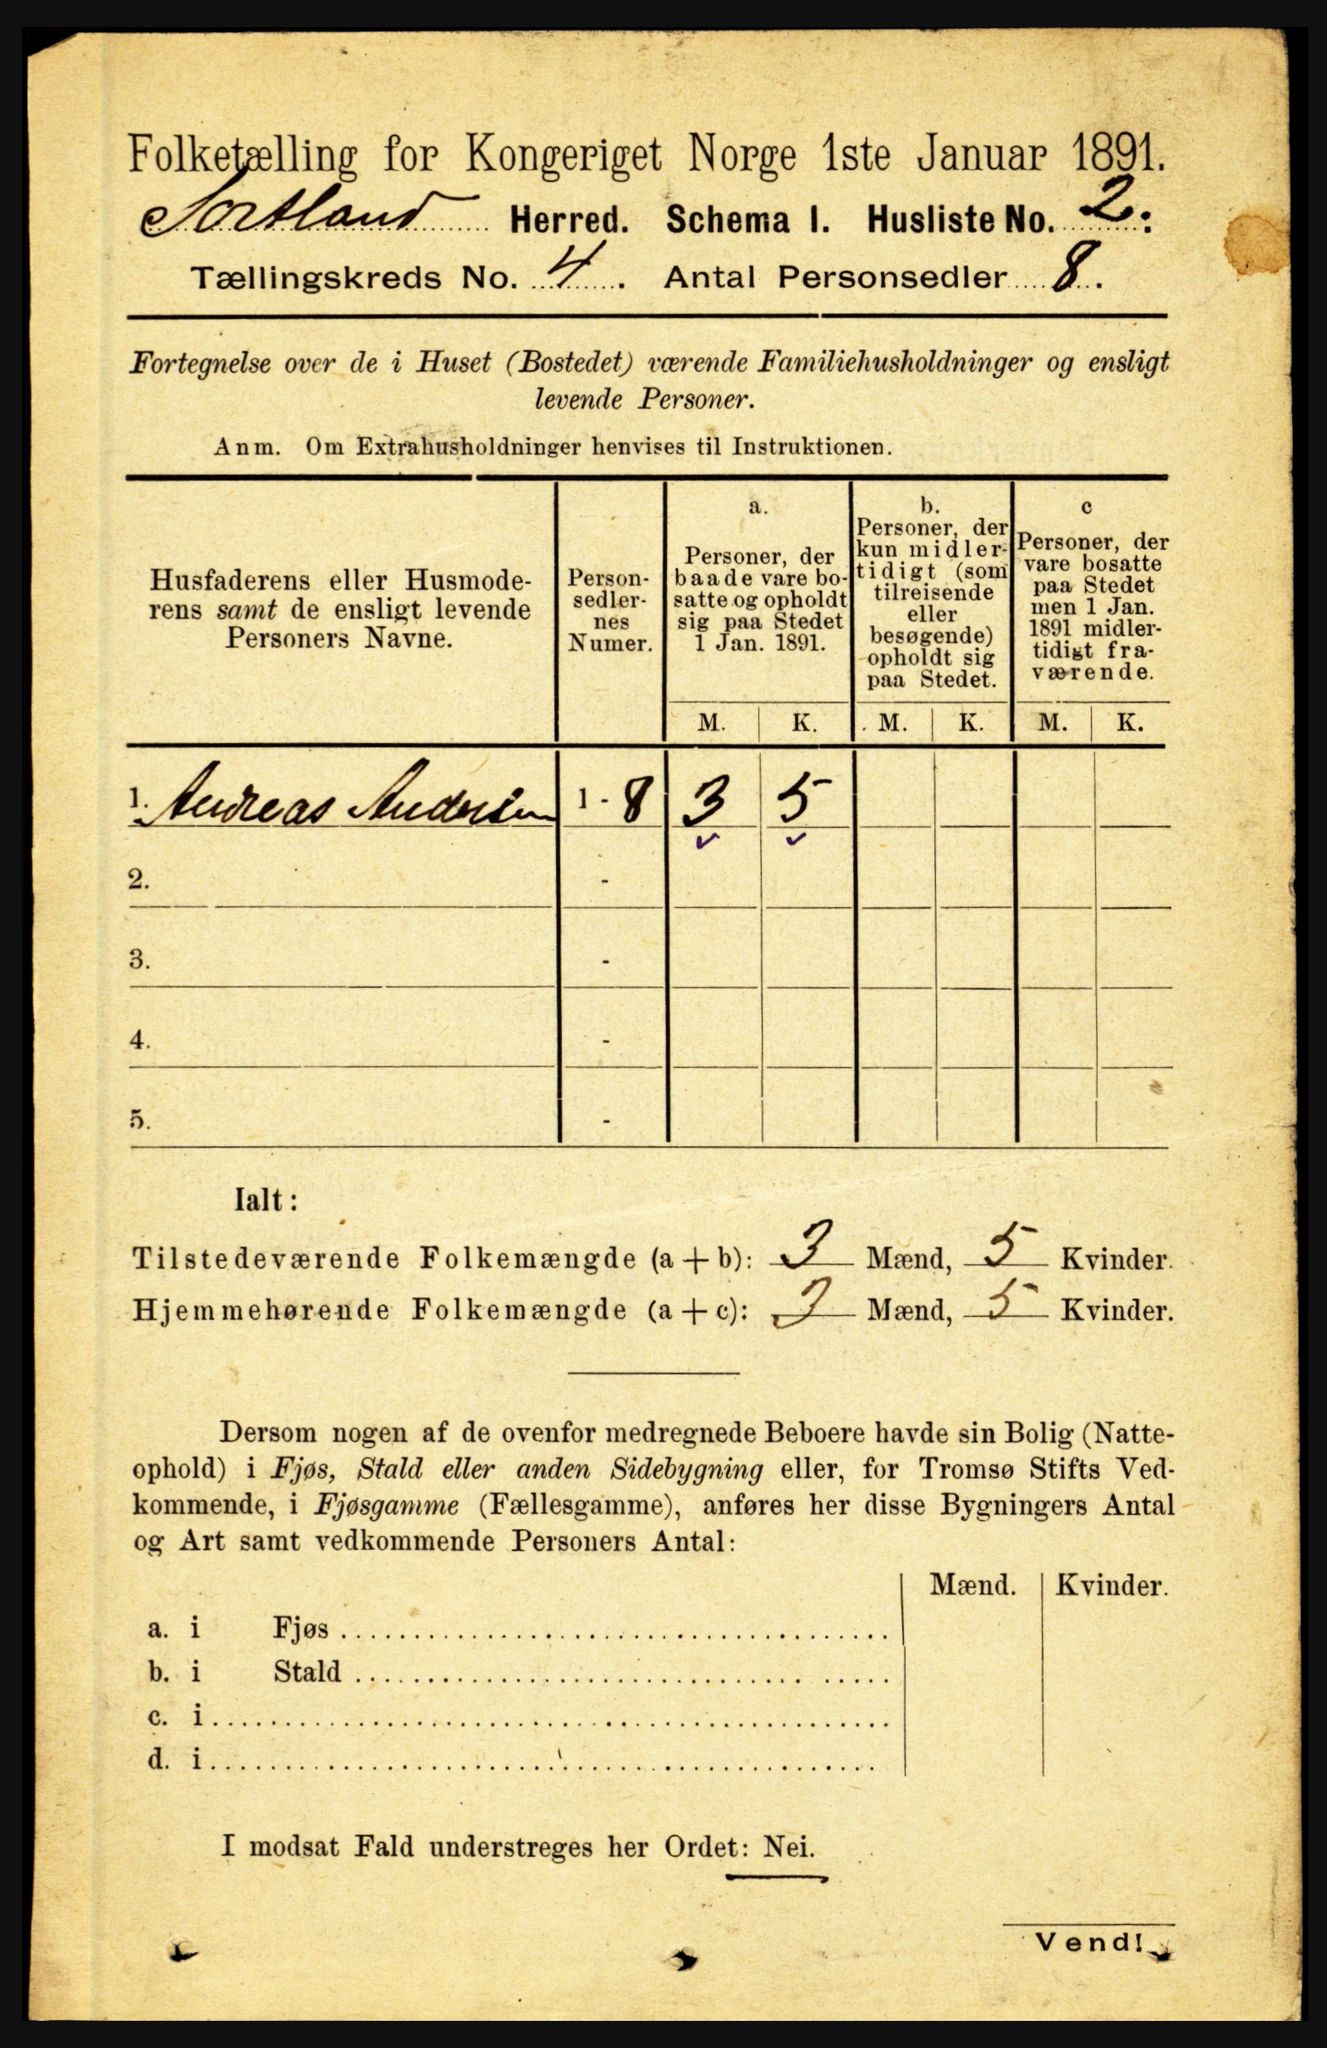 Folketælling for Kongeriget Norge 1ste Januar 1891.
Sortland Herred. Schema I. Husliste No. 2.
Tællingskreds No. 4. Antal Personsedler 8.
Fortegnelse over de i Huset (Bostedet) værende Familiehusholdninger og ensligt
levende Personer.
Anm. Om Extrahusholdninger henvises til Instruktionen.
Husfaderens eller Husmode-
rens samt de ensligt levende
Personers Navne.
Person-
sedler-
nes
Numer.
a.
Personer, der
baade vare bo-
satte og opholdt
sig paa Stedet
1 Jan. 1891.
b.
Personer, der
kun midler-
tidigt (som
tilreisende
eller
besøgende)
opholdt sig
paa Stedet.
c
Personer, der
vare bosatte
paa Stedet
men 1 Jan.
1891 midler-
tidigt fra-
værende.
M. K. M. K. M. K.
1. Andreas Andersen 1 - 8 3 5
2. -
3. -
4. -
5. -
Ialt:
Tilstedeværende Folkemængde (a + b): 3 Mænd, 5 Kvinder.
Hjemmehørende Folkemængde (a + c): 3 Mænd, 5 Kvinder.
Dersom nogen af de ovenfor medregnede Beboere havde sin Bolig (Natte-
ophold) i Fjøs, Stald eller anden Sidebygning eller, for Tromsø Stifts Ved-
kommende, i Fjøsgamme (Fællesgamme), anføres her disse Bygningers Antal
og Art samt vedkommende Personers Antal:
Mænd. Kvinder.
a. i Fjøs
b. i Stald
c. i
d. i
I modsat Fald understreges her Ordet: Nei.
Vend!